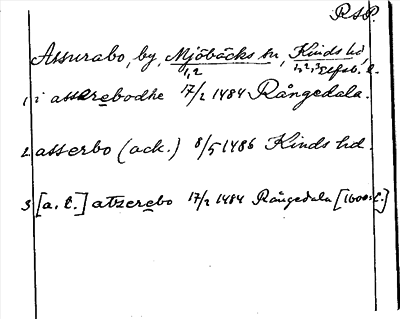 RSS.
Assurabo, by, Mjöbäcks sn, Kinds hd,
1,2 1,2,3 Elfsb. l.
1 i asserebodhe 17/2 1484 Rångedala.
2 asserbo (ack.) 8/5 1486 Kinds hd.
3 [a. l.] atzerebo 17/2 1484 Rångedala [1600-t.]